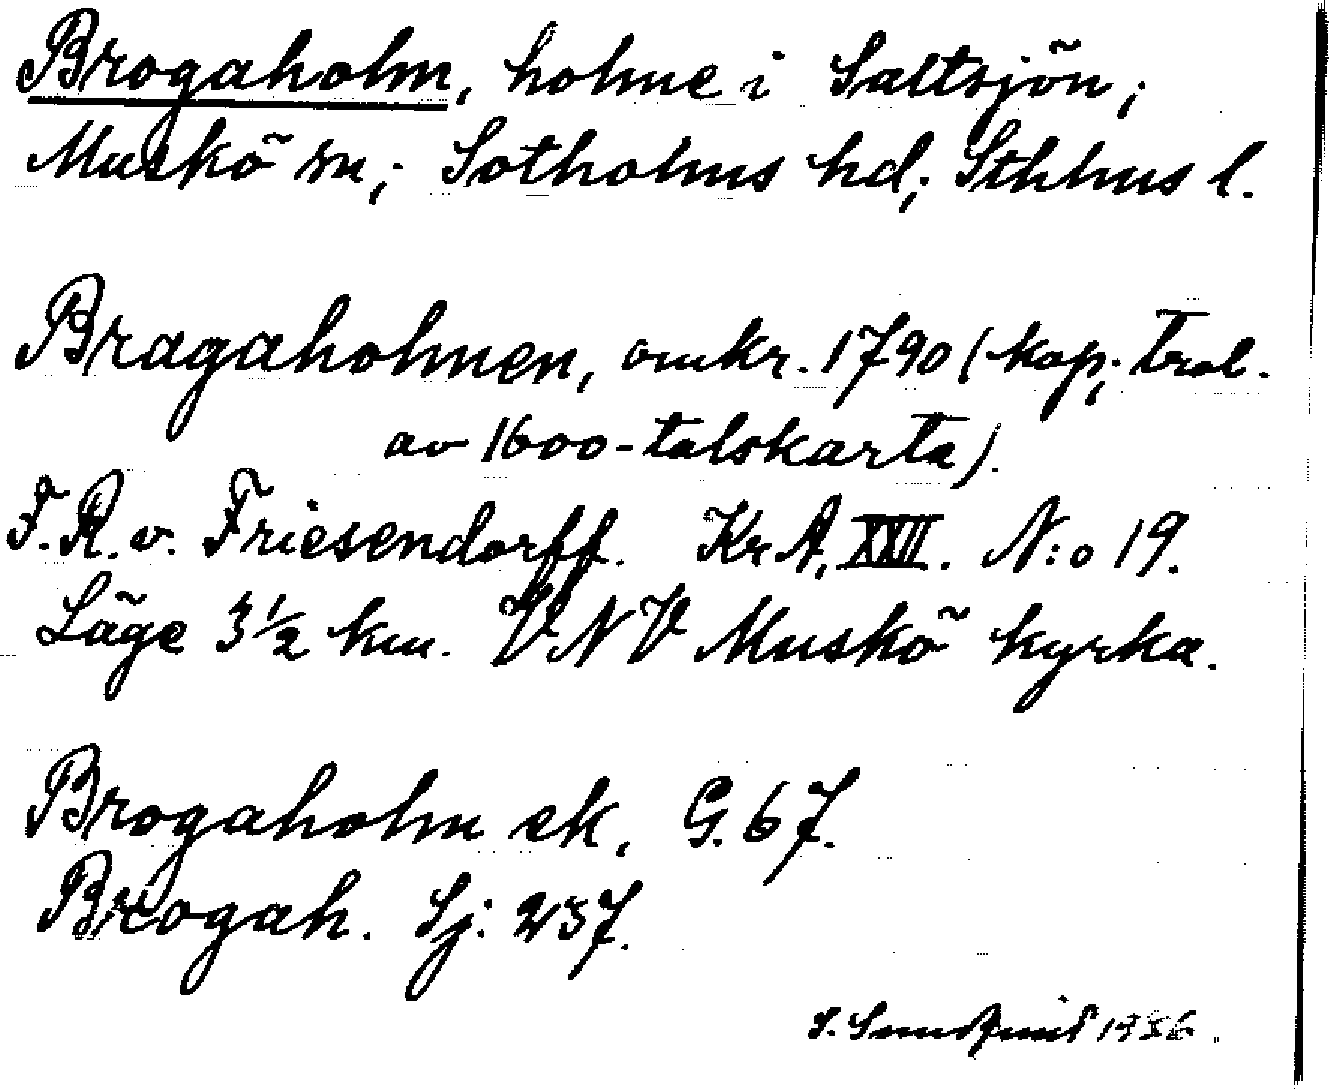 Brogaholm, holme i Saltsjön;
Muskö sn; Sotholms hd; Sthlms l.
Bragaholmen, omkr. 1790 (kop; trol.
av 1600-talskarta).
F. R. v. Friesendorff. Kr A, XXII. N:o 19.
Läge 3 1/2 km. VNV Muskö kyrka.
Brogaholm ek, G. 67.
Brogah. Sj: 237.
S. Sundqvist 1936.